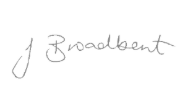 J Broadbent